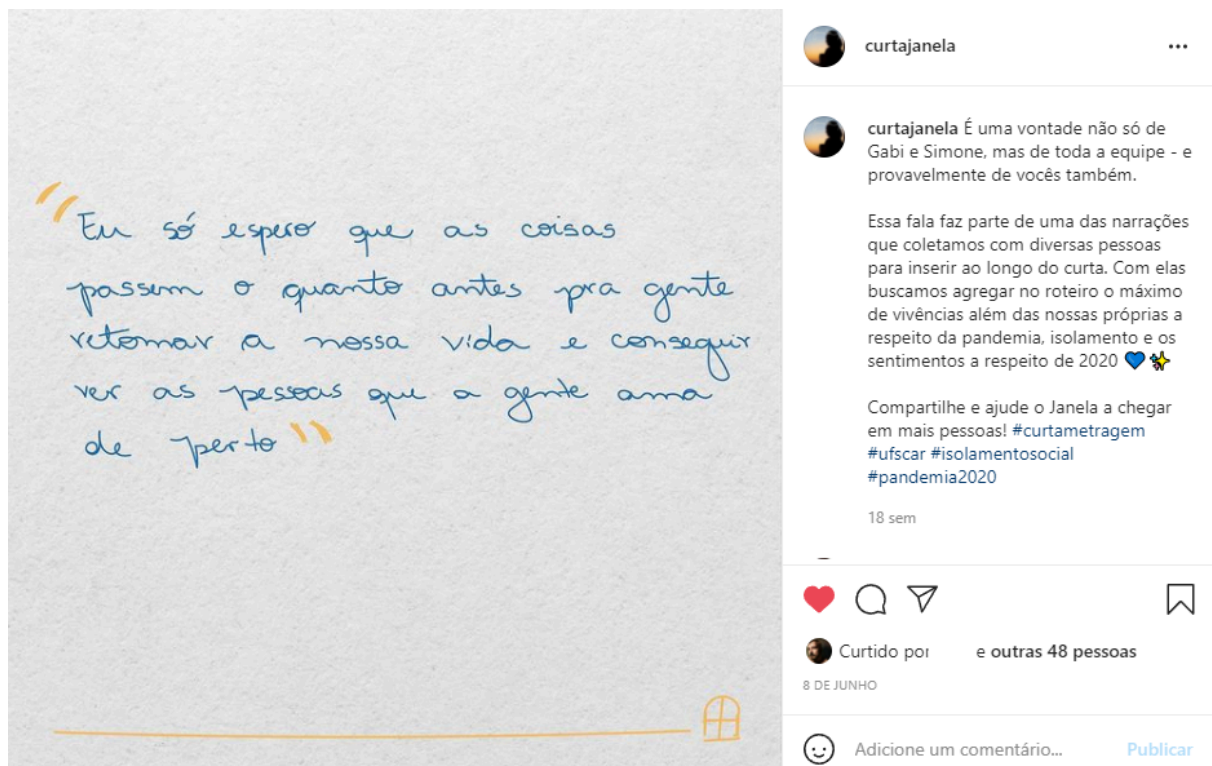 "Eu só espero que as coisas
passem o quanto antes pra gente
retomar a nossa vida e conseguir
ver as pessoas que a gente ama
de perto"
curtajanela
curtajanela É uma vontade não só de
Gabi e Simone, mas de toda a equipe - e
provavelmente de vocês também.
Essa fala faz parte de uma das narrações
que coletamos com diversas pessoas
para inserir ao longo do curta. Com elas
buscamos agregar no roteiro o máximo
de vivências além das nossas próprias a
respeito da pandemia, isolamento e os
sentimentos a respeito de 2020 💙✨
Compartilhe e ajude o Janela a chegar
em mais pessoas! #curtametragem
#ufscar #isolamentosocial
#pandemia2020
18 sem
Curtido por e outras 48 pessoas
8 DE JUNHO
Adicione um comentário... Publicar